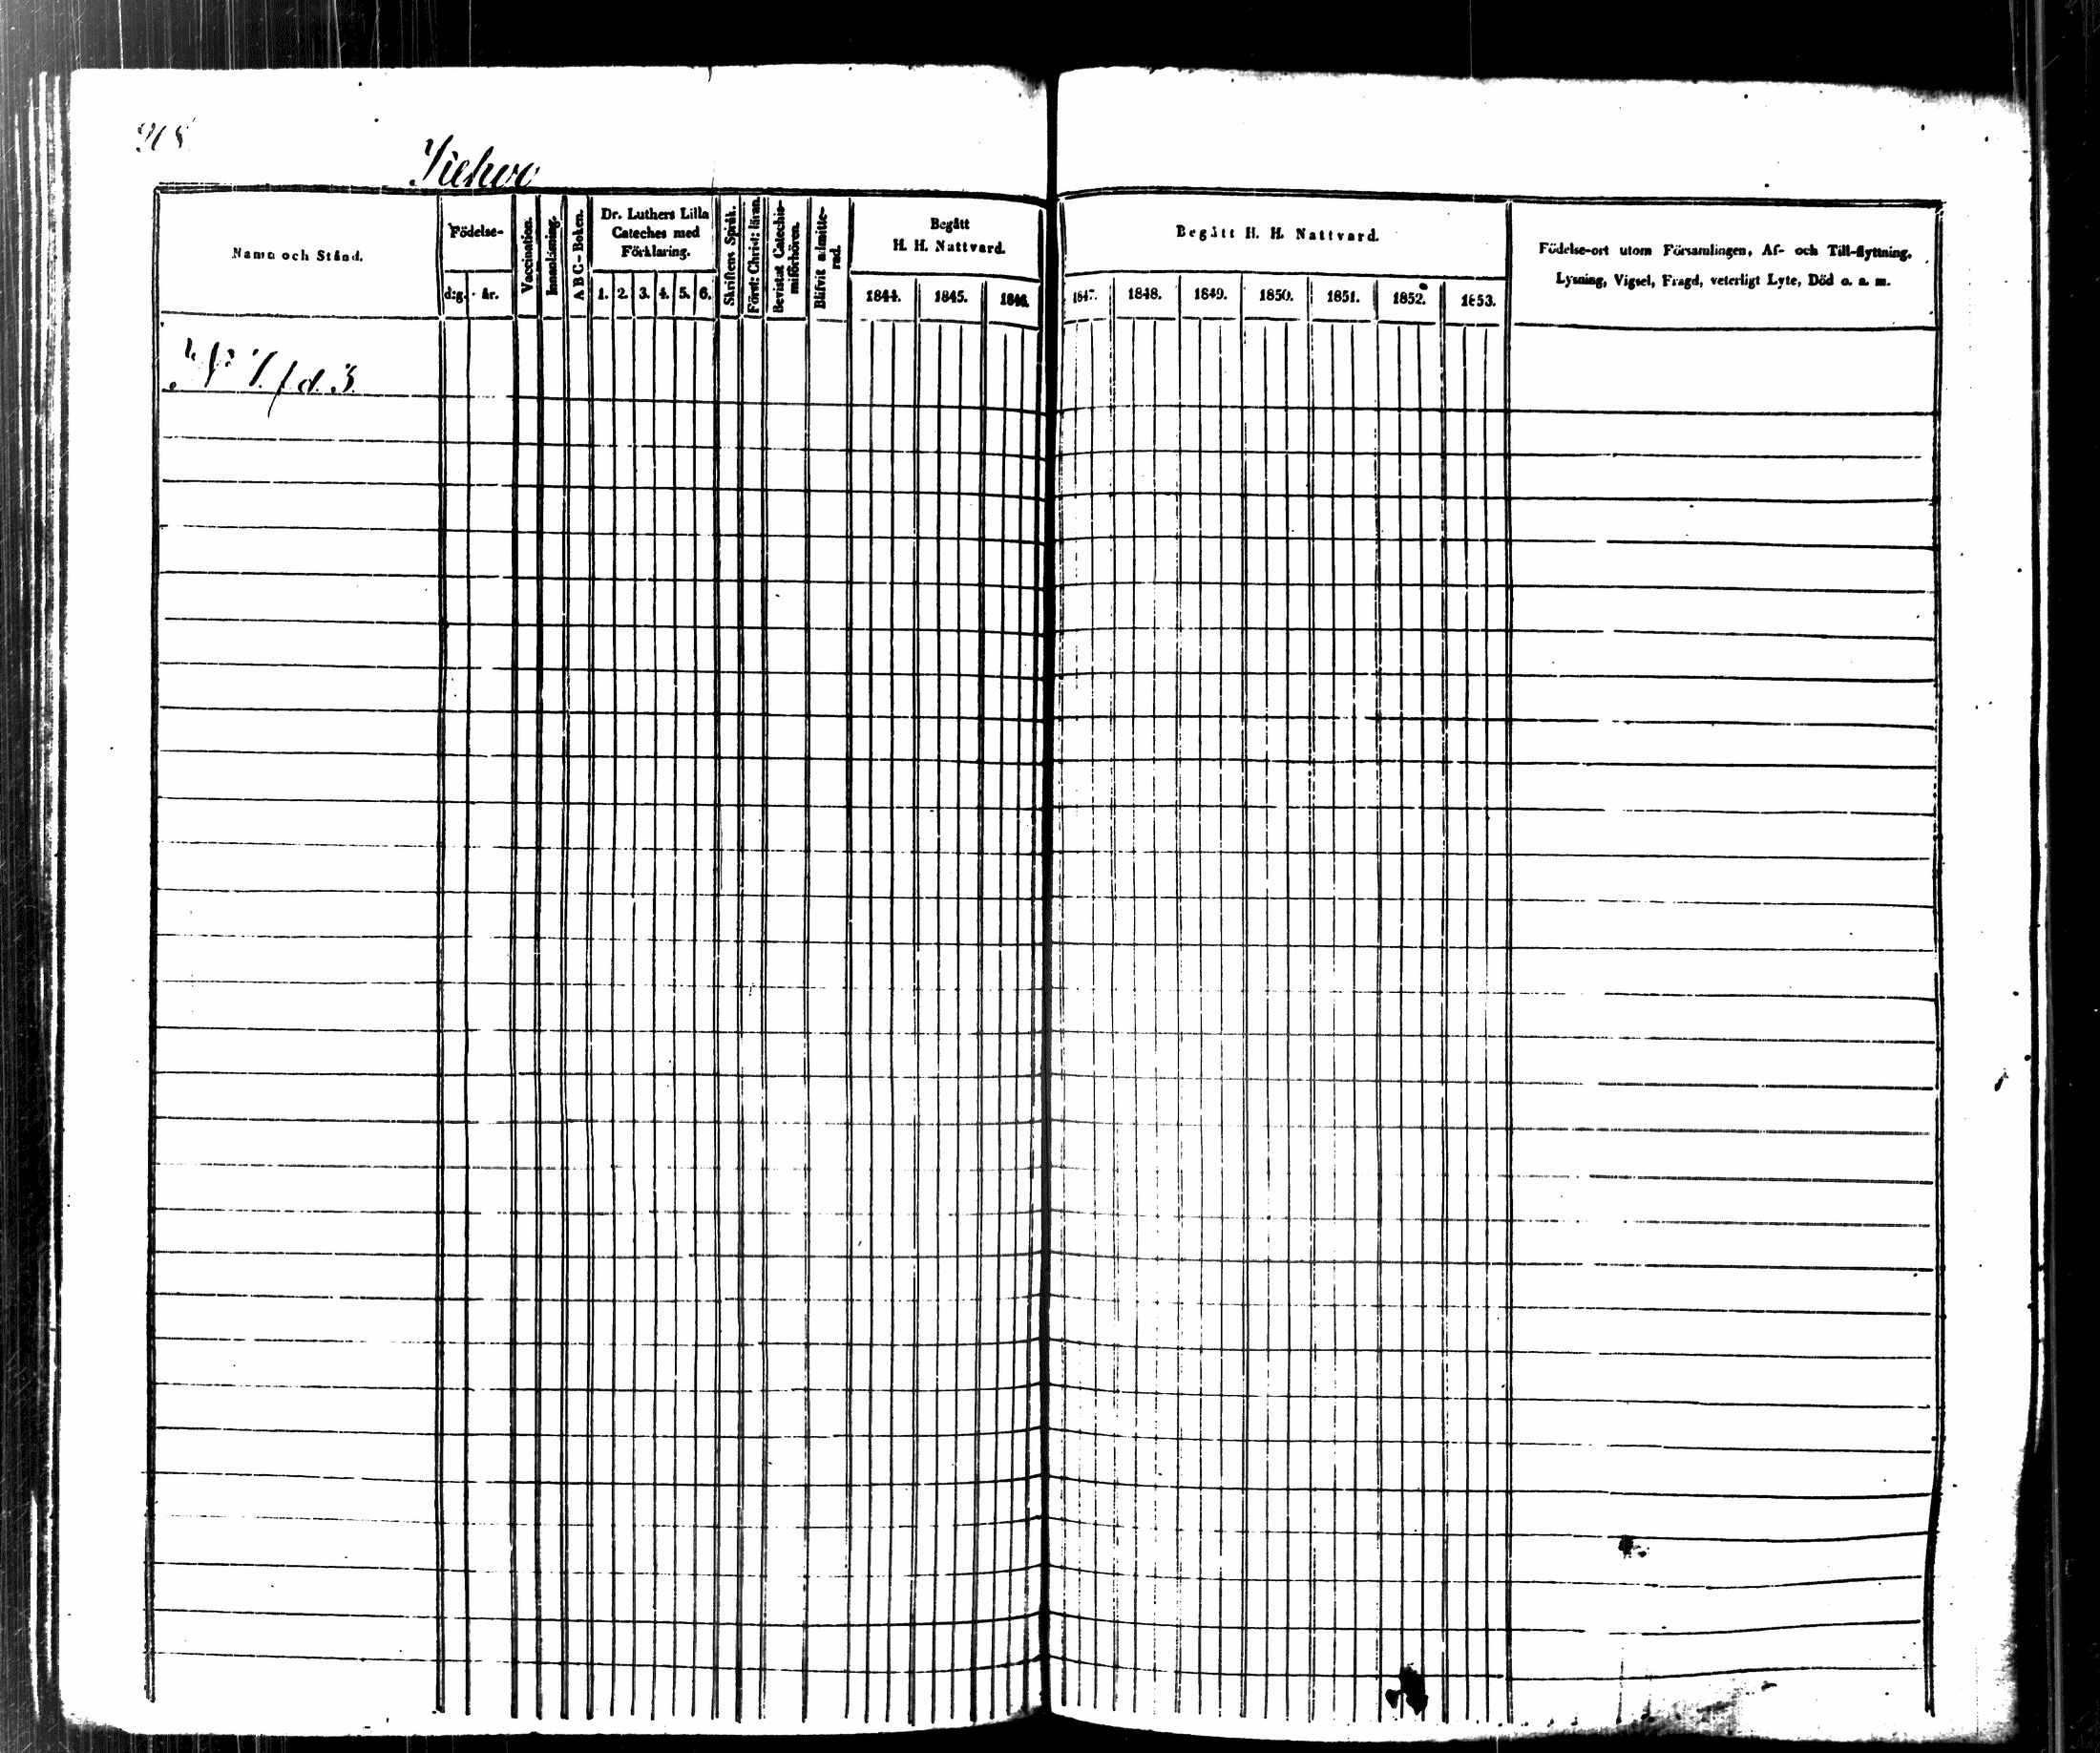 Namn och Stånd.
Födelse-
d:g. år.
Vaccination.
Innanläsning.
A B C-Boken.
Dr. Luthers Lilla
Cateches med
Förklaring.
1. 2. 3. 4. 5. 6.
Skriftens Språk.
Först: Christ: läran.
Bevistat Catechis-
miförhören.
Blifvit admitte-
rad.
Begått
H. H. Nattvard.
1844. 1845. 1846.
Begått H. H. Nattvard.
1847. 1848. 1849. 1850. 1851. 1852. 1853.
Födelse-ort utom Församlingen, Af- och Till-flyttning,
Lysning, Vigsel, Fragd, veterligt Lyte, Död o. a. m.